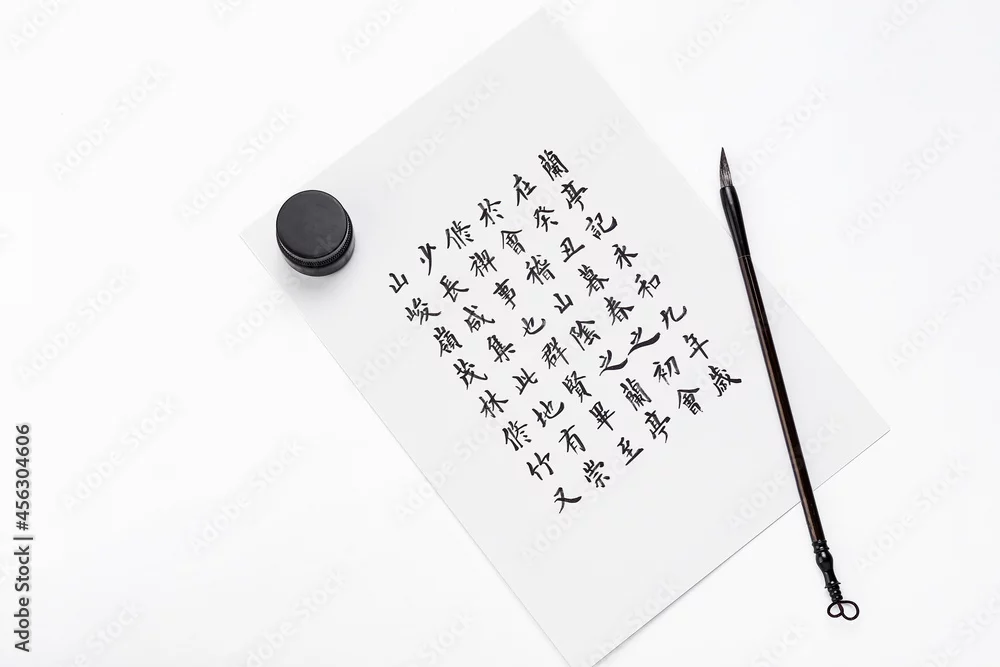 蘭亭記永和九年歲
在癸丑暮春之初會
於會稽山陰之蘭亭
修禊事也群賢畢至
少長咸集此地有崇
山峻嶺茂林修竹又
Adobe Stock | #456304606